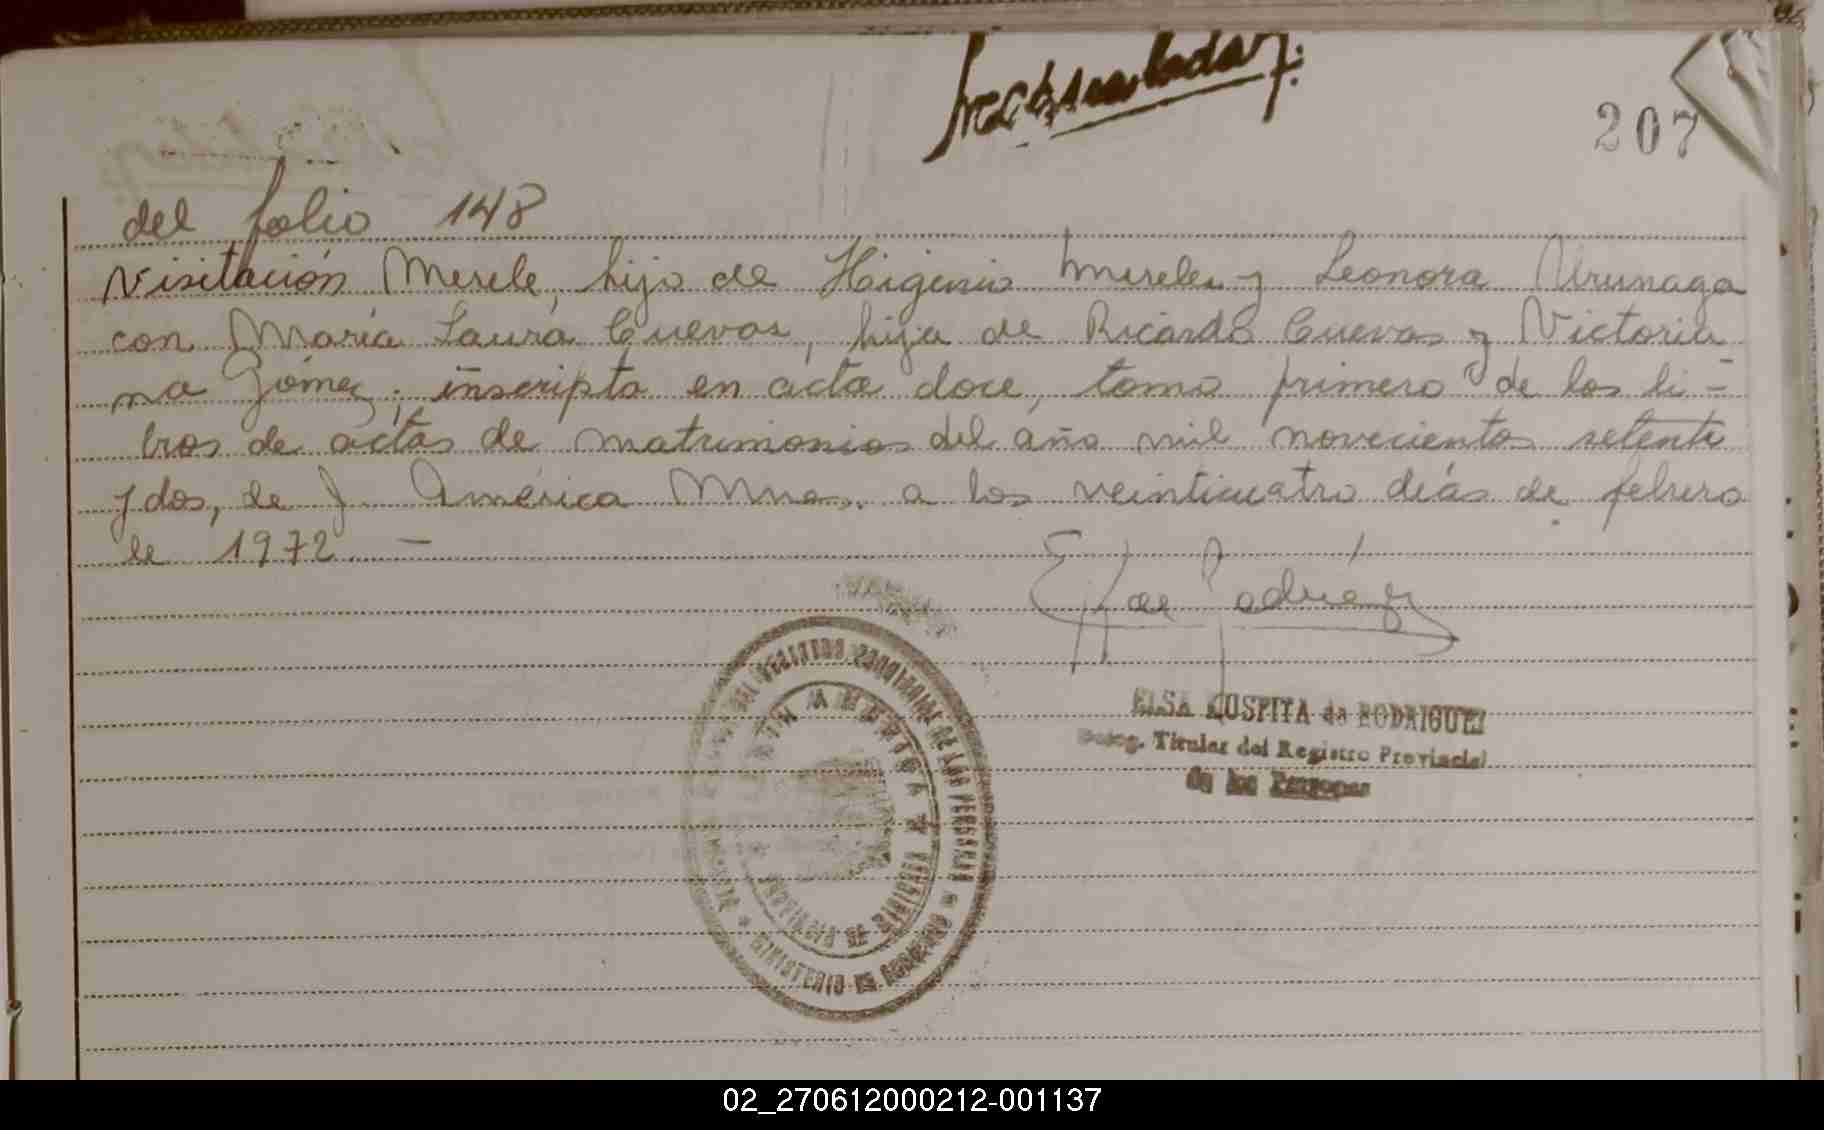 207
del folio 148
Visitación Merele, hijo de Higinio Mereles y Leonora Urunaga
con María Laura Cuevas, hija de Ricardo Cuevas y Victoria
na Gómez; inscripta en acta doce, tomo primero de los li=
bros de actas de matrimonios del año mil novecientos setenta
y dos, de J. América Mnes. a los veinticuatro días de febrero
de 1972. —
ELSA COSPITA de RODRIGUEZ
Titular del Registro Provincial
de las Personas
REGISTRO PROVINCIAL DE LAS PERSONAS
MINISTERIO DE GOBIERNO
PROVINCIA DE MISIONES
02_270612000212-001137